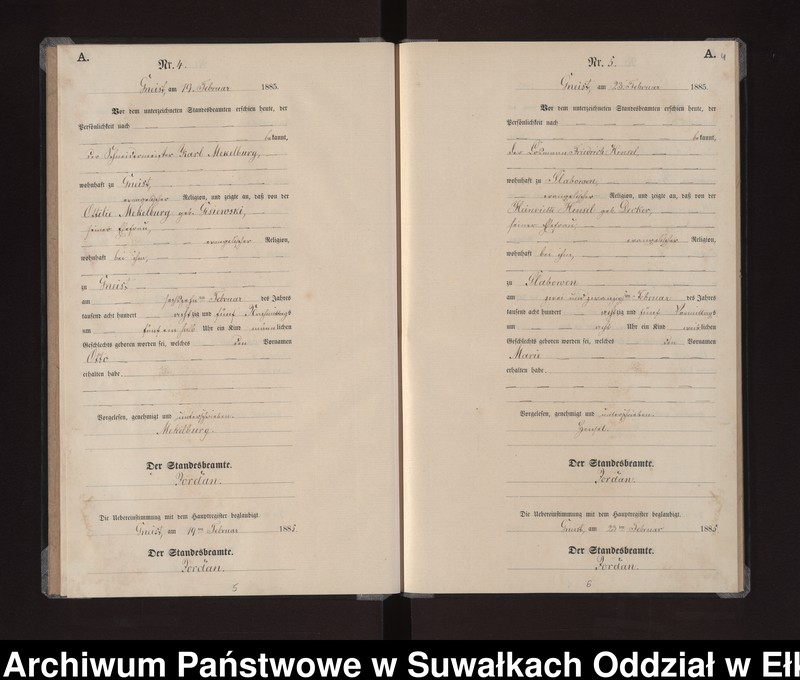 A.
Nr. 4.
Gneist, am 19. Februar 1885.
Vor dem unterzeichneten Standesbeamten erschien heute, der
Persönlichkeit nach
bekannt,
der Schneidermeister Karl Mekelburg,
wohnhaft zu Gneist,
evangelischer Religion, und zeigte an, daß von der
Ottilie Mekelburg geb.
seiner Ehefrau,
evangelischer Religion,
wohnhaft bei ihm,
zu Gneist
am sechszehnten Februar des Jahres
tausend acht hundert achtzig und fünf Nachmittags
um fünf ein halb Uhr ein Kind männlichen
Geschlechts geboren worden sei, welches den Vornamen
Otto
erhalten habe
Vorgelesen, genehmigt und unterschrieben.
Mekelburg.
Der Standesbeamte.
Jordan.
Die Uebereinstimmung mit dem Hauptregister beglaubigt.
Gneist, am 19ten Februar 1885.
Der Standesbeamte.
Jordan.
5
A. 4
Nr. 5.
Gneist, am 23. Februar 1885.
Vor dem unterzeichneten Standesbeamten erschien heute, der
Persönlichkeit nach
bekannt,
der Losmann Friedrich Hensel,
wohnhaft zu Slabowen,
evangelischer Religion, und zeigte an, daß von der
Heinriette Hensel geb. Decker,
seiner Ehefrau,
evangelischer Religion,
wohnhaft bei ihm,
zu Slabowen
am zwei und zwanzigsten Februar des Jahres
tausend acht hundert achtzig und fünf Vormittags
um acht Uhr ein Kind weiblichen
Geschlechts geboren worden sei, welches den Vornamen
Marie
erhalten habe
Vorgelesen, genehmigt und unterschrieben.
Hensel.
Der Standesbeamte.
Jordan.
Die Uebereinstimmung mit dem Hauptregister beglaubigt.
Gneist, am 23ten Februar 1885
Der Standesbeamte.
Jordan.
6
Archiwum Państwowe w Suwałkach Oddział w Ełk